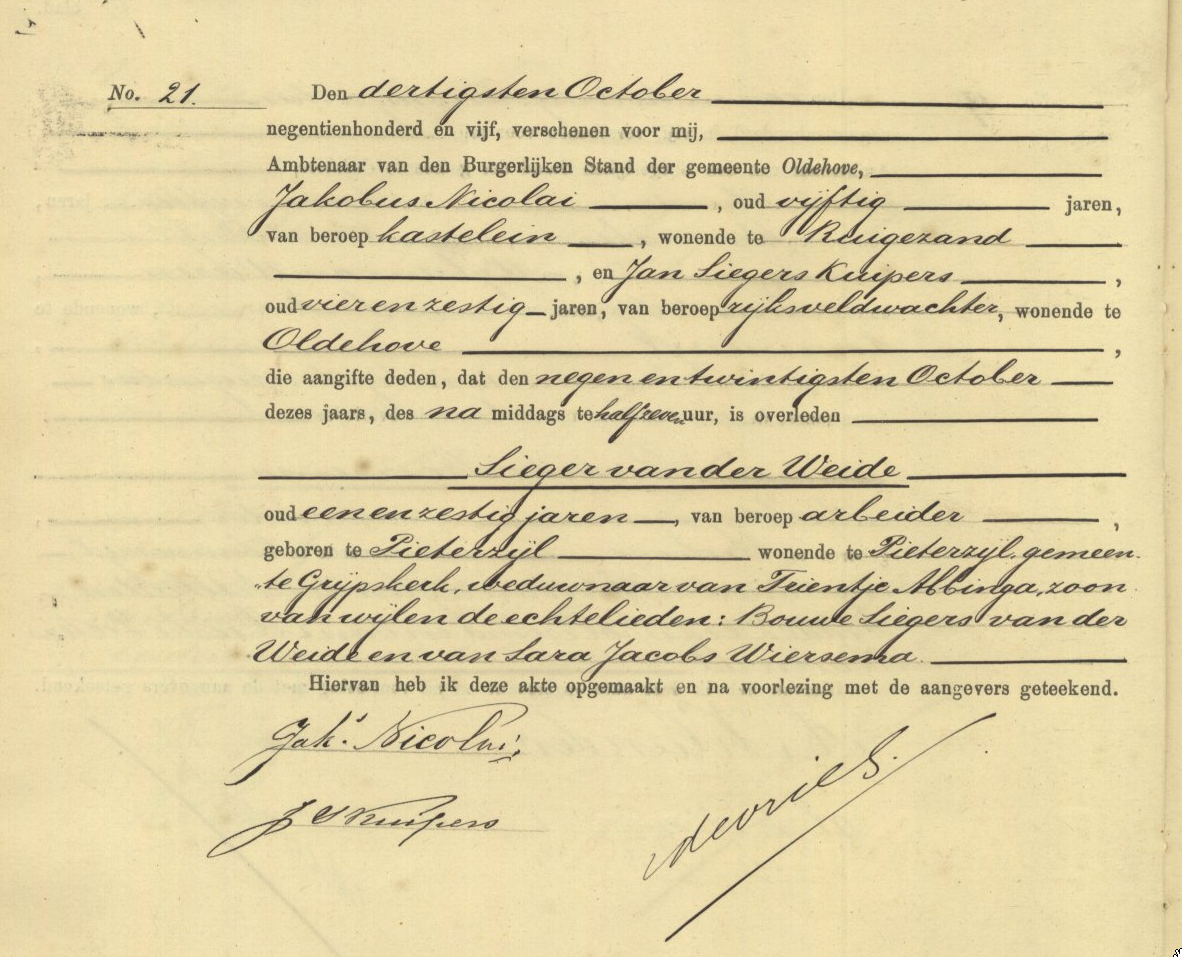 No. 21. Den dertigsten October
negentienhonderd en vijf, verschenen voor mij,
Ambtenaar van den Burgerlijken Stand der gemeente Oldehove,
Jakobus Nicolai , oud vijftig jaren,
van beroep kastelein , wonende te Ruigezand
, en Jan Siegers Kuipers ,
oud vier en zestig jaren, van beroep rijksveldwachter, wonende te
Oldehove ,
die aangifte deden, dat den negen en twintigsten October
dezes jaars, des na middags te half zeven uur, is overleden
Sieger van der Weide
oud een en zestig jaren , van beroep arbeider ,
geboren te Pieterzijl wonende te Pieterzijl, gemeen-
te Grijpskerk, weduwnaar van Trientje Abbinga, zoon
van wijlen de echtelieden: Bouwe Siegers van der
Weide en van Sara Jacobs Wiersema.
Hiervan heb ik deze akte opgemaakt en na voorlezing met de aangevers geteekend.
Jak.s Nicolai
J S Kuipers
de vries.